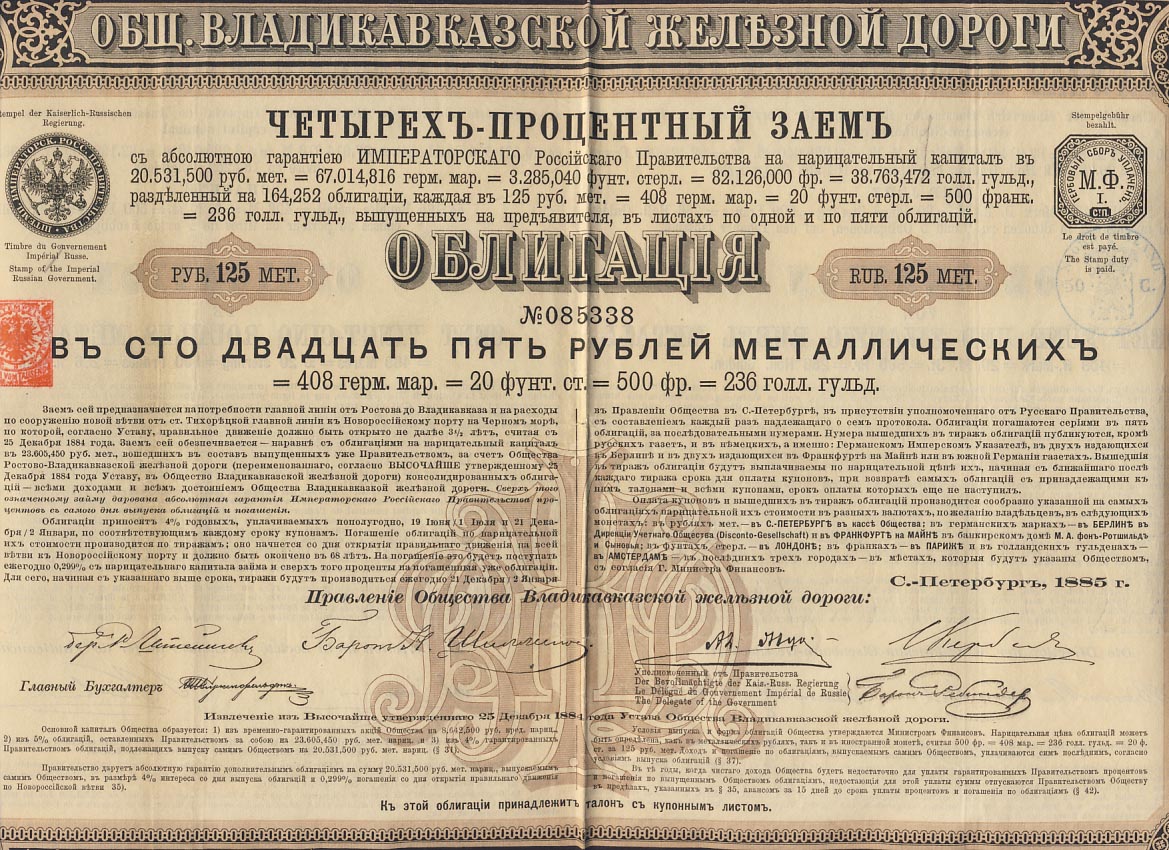 ОБЩ. ВЛАДИКАВКАЗСКОЙ ЖЕЛѢЗНОЙ ДОРОГИ
Stempel der Kaiserlich-Russischen
Regierung.
Timbre du Gouvernement
Impérial Russe.
Stamp of the Imperial
Russian Government.
ЧЕТЫРЕХЪ-ПРОЦЕНТНЫЙ ЗАЕМЪ
съ абсолютною гарантіею ИМПЕРАТОРСКАГО Россійскаго Правительства на нарицательный капиталъ въ
20.531,500 руб. мет. = 67.014,816 герм. мар. = 3.285,040 фунт. стерл. = 82.126,000 фр. = 38.763,472 голл. гульд.,
раздѣленный на 164,252 облигаціи, каждая въ 125 руб. мет. = 408 герм. мар. = 20 фунт. стерл. = 500 франк.
= 236 голл. гульд., выпущенныхъ на предъявителя, въ листахъ по одной и по пяти облигацій.
Stempelgebühr
bezahlt.
ГЕРБОВЫЙ СБОРЪ УПЛАЧЕНЪ
М.Ф.
I.
ст.
Le droit de timbre
est payé.
The Stamp duty
is paid.
РУБ. 125 МЕТ.
ОБЛИГАЦІЯ
RUB. 125 MET.
№085338
ВЪ СТО ДВАДЦАТЬ ПЯТЬ РУБЛЕЙ МЕТАЛЛИЧЕСКИХЪ
= 408 герм. мар. = 20 фунт. ст. = 500 фр. = 236 голл. гульд.
Заемъ сей предназначается на потребности главной линіи отъ Ростова до Владикавказа и на расходы
по сооруженію новой вѣтви отъ ст. Тихорѣцкой главной линіи къ Новороссійскому порту на Черномъ морѣ,
по которой, согласно Уставу, правильное движеніе должно быть открыто не далѣе 3½ лѣтъ, считая съ
25 Декабря 1884 года. Заемъ сей обезпечивается — наравнѣ съ облигаціями на нарицательный капиталъ
въ 23.605,450 руб. мет., вошедшихъ въ составъ выпущенныхъ уже Правительствомъ, за счетъ Общества
Ростово-Владикавказской желѣзной дороги (переименованнаго, согласно ВЫСОЧАЙШЕ утвержденному 25
Декабря 1884 года Уставу, въ Общество Владикавказской желѣзной дороги) консолидированныхъ облига-
цій — всѣми доходами и всѣмъ достояніемъ Общества Владикавказской желѣзной дороги. Сверхъ того
означенному займу дарована абсолютная гарантія Императорскаго Россійскаго Правительства про-
центовъ съ самого дня выпуска облигацій и погашенія.
Облигаціи приносятъ 4% годовыхъ, уплачиваемыхъ пополугодно, 19 Іюня / 1 Іюля и 21 Дека-
бря / 2 Января, по соотвѣтствующимъ каждому сроку купонамъ. Погашеніе облигацій по нарицательной
ихъ стоимости производится по тиражамъ; оно начнется со дня открытія правильнаго движенія на всей
вѣтви къ Новороссійскому порту и должно быть окончено въ 68 лѣтъ. На погашеніе это будетъ поступать
ежегодно 0,299% съ нарицательнаго капитала займа и сверхъ того проценты на погашенныя уже облигаціи.
Для сего, начиная съ указаннаго выше срока, тиражи будутъ производиться ежегодно 21 Декабря / 2 Января
въ Правленіи Общества въ С.-Петербургѣ, въ присутствіи уполномоченнаго отъ Русскаго Правительства,
съ составленіемъ каждый разъ надлежащаго о семъ протокола. Облигаціи погашаются серіями въ пять
облигацій, за послѣдовательными нумерами. Нумера вышедшихъ въ тиражъ облигацій публикуются, кромѣ
русскихъ газетъ, и въ нѣмецкихъ, а именно: Германскомъ Имперскомъ Указателѣ, въ двухъ издающихся
въ Берлинѣ и въ двухъ издающихся въ Франкфуртѣ на Майнѣ или въ южной Германіи газетахъ. Вышедшія
въ тиражъ облигаціи будутъ выплачиваемы по нарицательной цѣнѣ ихъ, начиная съ ближайшаго послѣ
каждаго тиража срока для оплаты купоновъ, при возвратѣ самыхъ облигацій съ принадлежащими къ
нимъ талонами и всѣми купонами, срокъ оплаты которыхъ еще не наступилъ.
Оплата купоновъ и вышедшихъ въ тиражъ облигацій производится сообразно указанной на самыхъ
облигаціяхъ нарицательной ихъ стоимости въ разныхъ валютахъ, по желанію владѣльцевъ, въ слѣдующихъ
монетахъ: въ рубляхъ мет. — въ С.-ПЕТЕРБУРГѢ въ кассѣ Общества; въ германскихъ маркахъ — въ БЕРЛИНѢ въ
Дирекціи Учетнаго Общества (Disconto-Gesellschaft) и въ ФРАНКФУРТѢ НА МАЙНѢ въ банкирскомъ домѣ М. А. фонъ-Ротшильдъ
и Сыновья; въ фунтахъ стерл. — въ ЛОНДОНѢ; въ франкахъ — въ ПАРИЖѢ и въ голландскихъ гульденахъ —
въ АМСТЕРДАМѢ — въ послѣднихъ трехъ городахъ — въ мѣстахъ, которыя будутъ указаны Обществомъ,
съ согласія Г. Министра Финансовъ.
С.-Петербургъ, 1885 г.
Правленіе Общества Владикавказской желѣзной дороги:
Главный Бухгалтеръ
Уполномоченный отъ Правительства
Der Bevollmächtigte der Kais.-Russ. Regierung
Le Délégué du Gouvernement Impérial de Russie
The Delegate of the Government
Извлеченіе изъ Высочайше утвержденнаго 25 Декабря 1884 года Устава Общества Владикавказской желѣзной дороги.
Основной капиталъ Общества образуется: 1) изъ временно-гарантированныхъ акцій Общества на 8,642,500 руб. кред. нариц.
2) изъ 5% облигацій, оставленныхъ Правительствомъ за собою на 23.605,450 руб. мет. нариц. и 3) изъ 4% гарантированныхъ
Правительствомъ облигацій, подлежащихъ выпуску самимъ Обществомъ на 20,531,500 руб. мет. нариц. (§ 31).
Правительство даруетъ абсолютную гарантію дополнительнымъ облигаціямъ на сумму 20,531,500 руб. мет. нариц., выпускаемымъ
самимъ Обществомъ, въ размѣрѣ 4% интереса со дня выпуска облигацій и 0,299% погашенія со дня открытія правильнаго движенія
по Новороссійской вѣтви 35).
Условія выпуска и форма облигацій Общества утверждаются Министромъ Финансовъ. Нарицательная цѣна облигацій можетъ
быть опредѣлена, какъ въ металлическихъ рубляхъ, такъ и въ иностранной монетѣ, считая 500 фр. = 408 мар. = 236 голл. гульд. = 20 ф.
ст. за 125 руб. мет. Доходъ и погашеніе по облигаціямъ, выпускаемымъ самимъ Обществомъ, уплачиваются симъ послѣднимъ, согласно
условіямъ выпуска облигацій (§ 37).
Въ тѣ годы, когда чистаго дохода Общества будетъ недостаточно для уплаты гарантированныхъ Правительствомъ процентовъ
и погашенія по выпущеннымъ Обществомъ облигаціямъ, недостающая для этой уплаты суммы отпускаются Правительствомъ Обществу
въ предѣлахъ, указанныхъ въ § 35, авансомъ за 15 дней до срока уплаты процентовъ и погашенія по облигаціямъ (§ 42).
Къ этой облигаціи принадлежитъ талонъ съ купоннымъ листомъ.